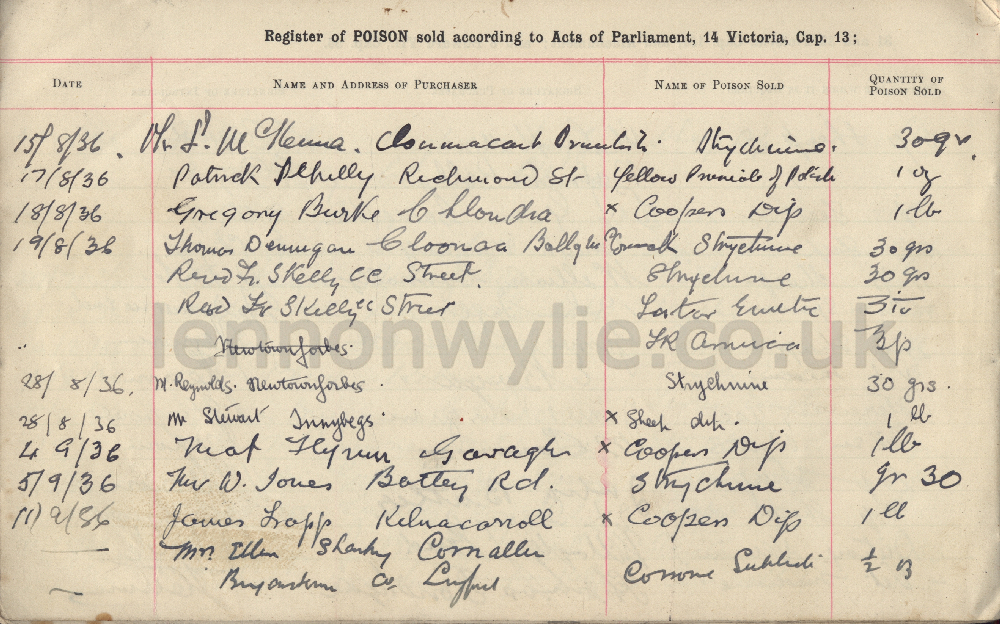 Register of POISON sold according to Acts of Parliament, 14 Victoria, Cap. 13;
DATE NAME AND ADDRESS OF PURCHASER NAME OF POISON SOLD QUANTITY OF POISON SOLD
15/8/36 McKenna. Strychnine. 30 gr.
17/8/36 Patrick Richmond St Yellow 1 oz
18/8/36 Gregory Burke Clondra x Coopers Dip 1 lb
19/8/36 Thomas Dennigan Cloonaa Strychnine 30 grs
Revd Fr. Skelly CC Street. Strychnine 30 grs
Revd Fr Skelly CC Street Tartar Emetic
Newtownforbes. Arnica
lennonwylie.co.uk
28/8/36. M. Reynolds. Newtownforbes. Strychnine 30 grs.
28/8/36 Mr Stewart Innybegs x Sheep dip. 1 lb
4 9/36 Mat Flynn x Coopers Dip 1 lb
5/9/36 W. Jones Battery Rd. Strychnine gr 30
11/9/36 James Trapp Kilnacarroll x Coopers Dip 1 lb
Mrs Ellen Sharkey
Co. Corrosive ½